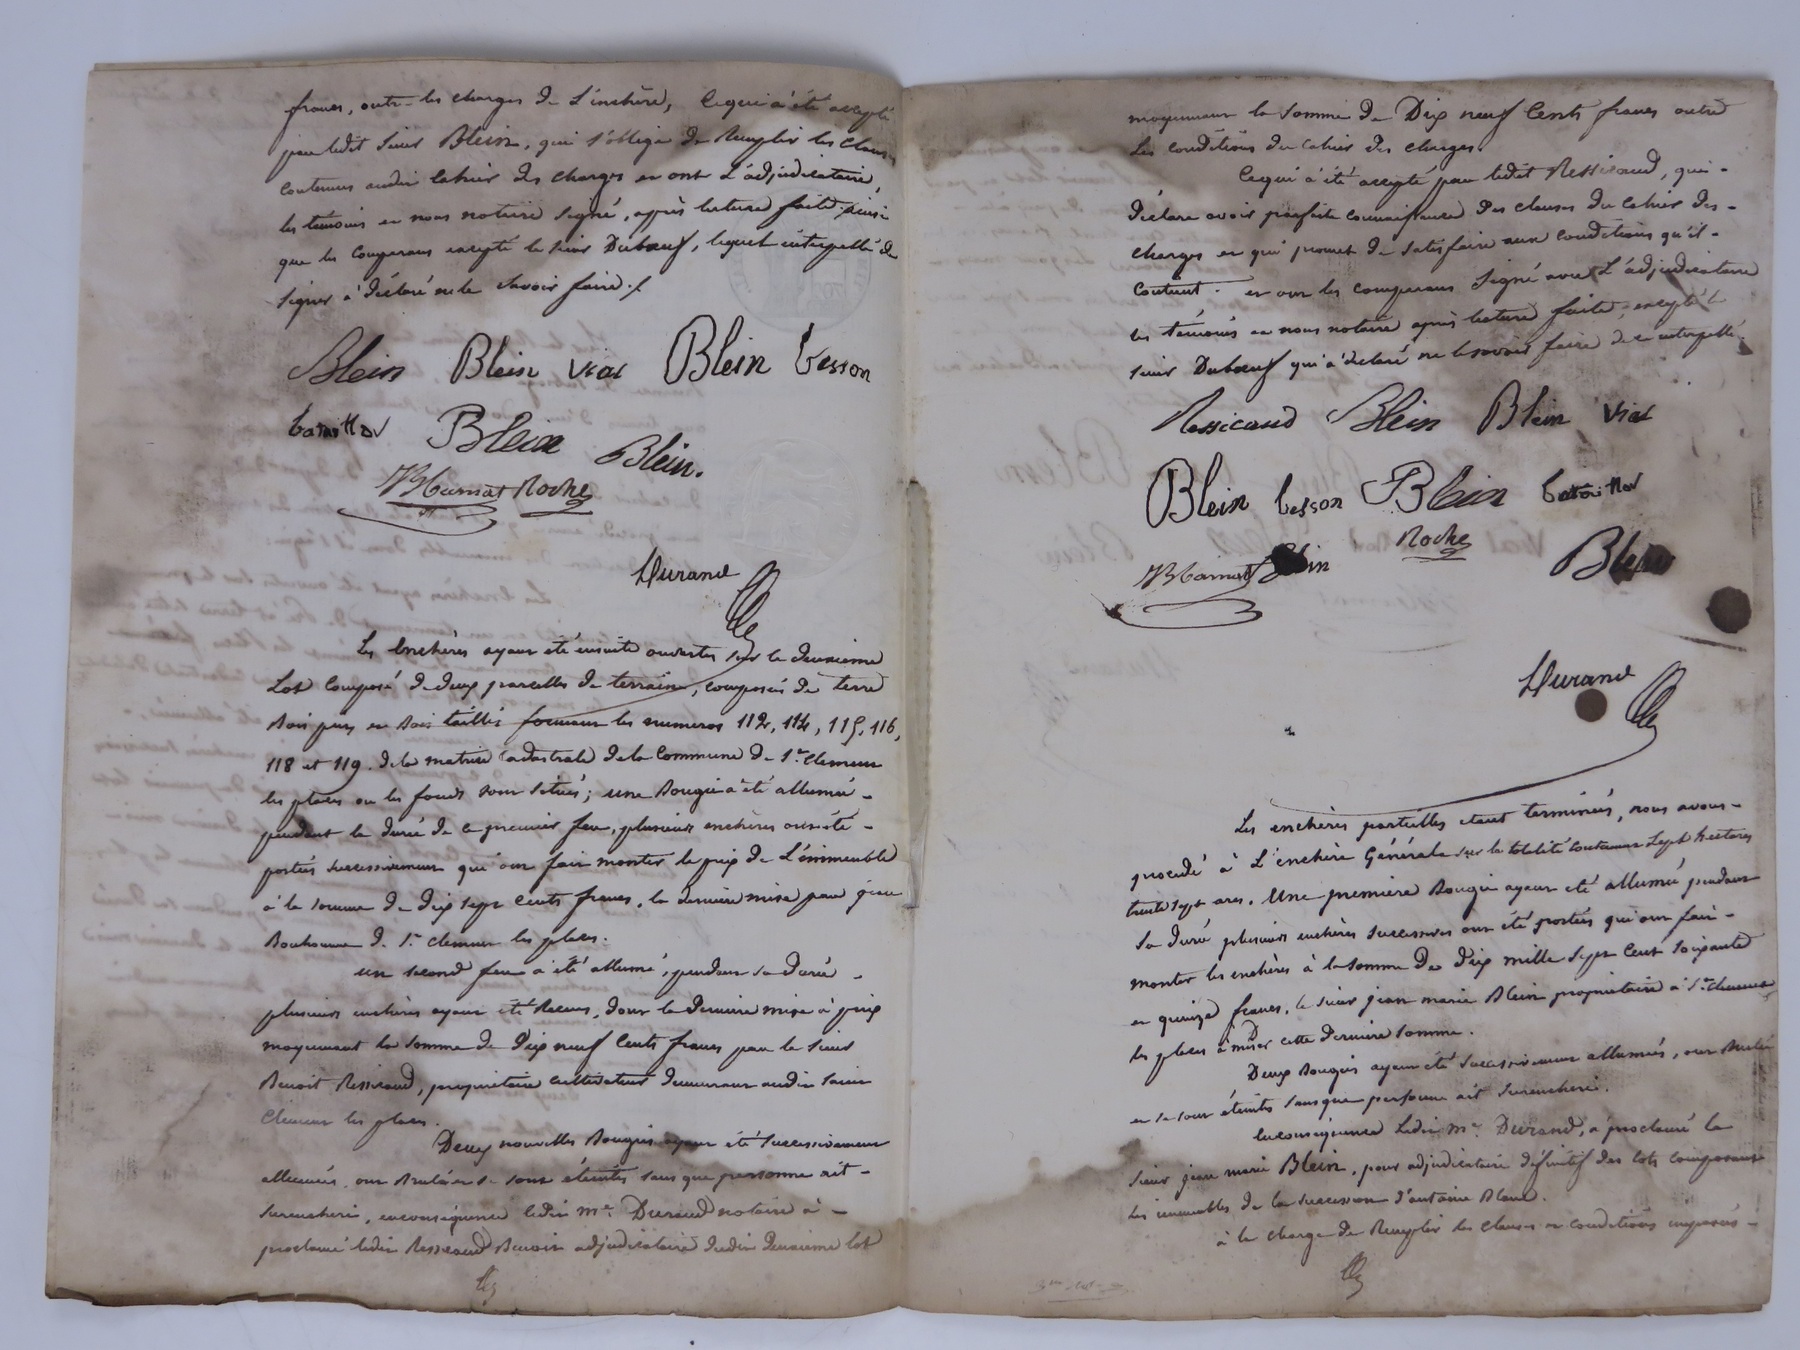 francs, outre les charges de L'enchère, Ce qui a été accepté
par ledit Sieur Blein, qui s'oblige de Remplir les clauses
contenues audit Cahier des charges et ont L'adjudicataire,
les témoins et nous notaire signé, après lecture faite, ainsi
que les comparans excepté le sieur Dubœuf, lequel interpellé de
signer a déclaré ne le savoir faire./
Blein Blein Vial Blein besson
bataillon Blein Blein.
Roche
Durand
Les Enchères ayant été ensuite ouvertes sur le deuxième
Lot composé de deux parcelles de terrain, composées de terre
Bois pins et Bois taillis formant les numeros 112, 114, 115, 116,
118 et 119. de la matrice cadastrale de la Commune de St. Clément
les places ou les fonds sont situés; une Bougie a été allumée
pendant la durée de ce premier feu, plusieurs enchères ont été
portées successivement qui ont fait monter le prix de L'immeuble
à la somme de dix sept cents francs, la dernière mise par jean
Bonhomme de St. clement les places.
un second feu a été allumé, pendant sa durée
plusieurs enchères ayant été Recues, dont la dernière mise à prix
moyennant la somme de Dix neuf Cents francs par le sieur
Benoit Ressicaud, propriétaire cultivateur demeurant audit saint
Clément les places.
Deux nouvelles Bougies ayant été successivement
allumées, ont Brulé et se sont éteintes sans que personne ait
surenchéri, en conséquence ledit Me. Durand notaire à
proclamé ledit Ressicaud Benoit adjudicataire dudit deuxieme lot
moyennant la somme de Dix neuf Cents francs outre
Les conditions du cahier des charges.
Ce qui a été accepté par ledit Ressicaud, qui
déclare avoir parfaite connaissance des clauses du Cahier des
charges et qui promet de satisfaire aux conditions qu'il
contient. et ont les comparans signé avec L'adjudicataire
les témoins et nous notaire après lecture faite, excepté le
sieur Dubœuf qui a déclaré ne le savoir faire de ce interpellé
Ressicaud Blein Blein Vial
Blein besson Blein bataillon
Blein Roche Blein
Durand
Les enchères partielles étant terminées, nous avons
procédé à L'enchère Générale sur la totalité contenant Sept hectares
trente sept ares. Une première Bougie ayant été allumée pendant
sa durée plusieurs enchères successives ont été portées qui ont fait
monter les enchères à la somme de Dix mille Sept Cent soixante
et quinze francs, le sieur jean marie Blein propriétaire à St. Clement
les places à miser cette dernière somme.
Deux Bougies ayant été successivement allumées, ont Brulé
et se sont éteintes sans que personne ait surenchéri.
En conséquence Ledit Me. Durand, a proclamé le
sieur jean marie Blein, pour adjudicataire définitif des lots composant
les immeubles de la succession d'antoine Blanc.
à la charge de Remplir les clauses et conditions imposées